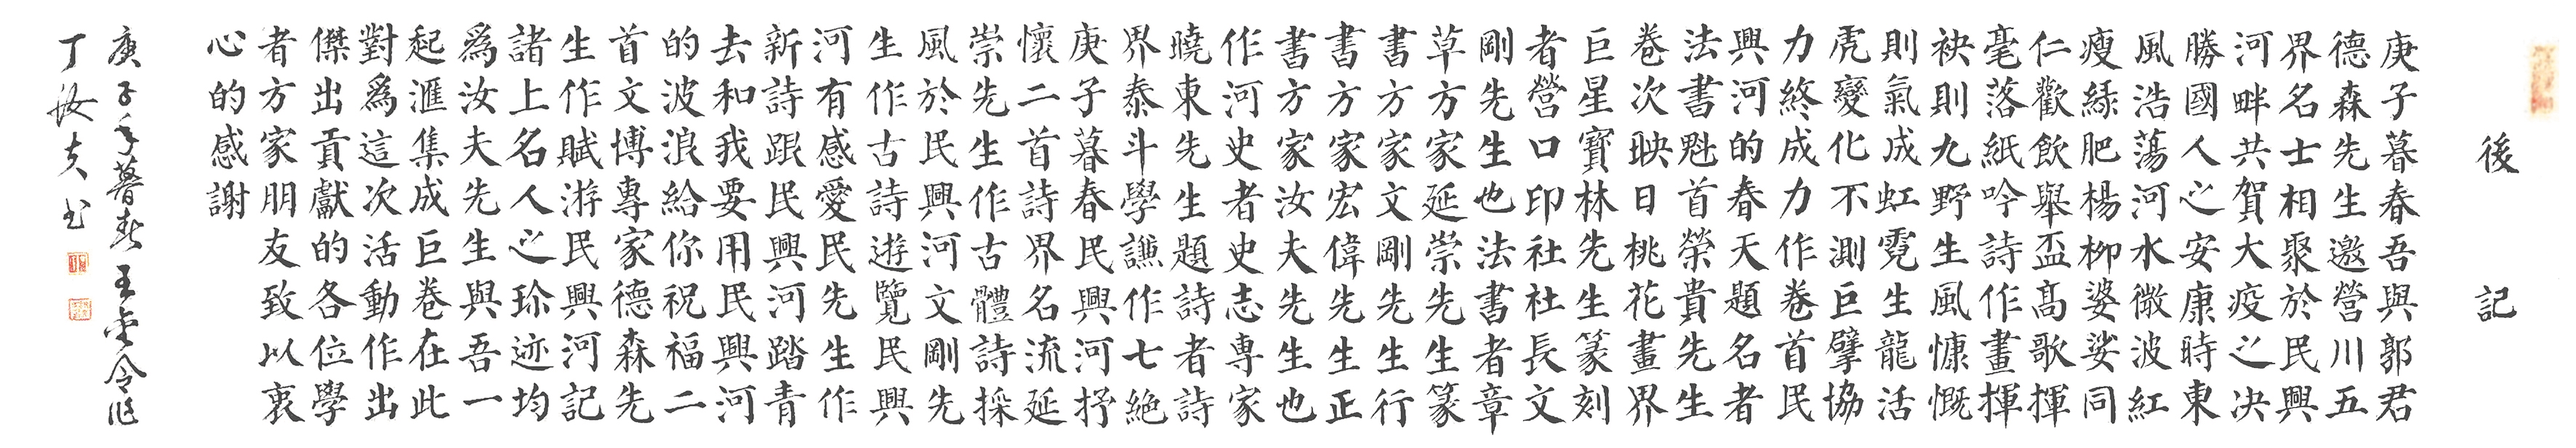 後記
庚子暮春吾與郭君
德森先生邀營川五
界名士相聚於民興
河畔共賀大疫之决
勝國人之安康時東
風浩蕩河水微波紅
瘦緑肥楊柳婆娑同
仁歡飲舉盃高歌揮
毫落紙吟詩作畫揮
袂則九野生風慷慨
則氣成虹霓生龍活
虎變化不測巨擘協
力終成力作卷首民
興河的春天題名者
法書魁首榮貴先生
卷次映日桃花畫界
巨星寶林先生篆刻
者營口印社社長文
剛先生也法書者章
草方家延崇先生篆
書方家文剛先生行
書方家宏偉先生正
書方家汝夫先生也
作河史者史志專家
曉東先生題詩者詩
界泰斗學謙作七絶
庚子暮春民興河抒
懷二首詩界名流延
崇先生作古體詩採
風於民興河文剛先
生作古詩遊覽民興
河有感愛民先生作
新詩跟民興河踏青
去和我要用民興河
的波浪給你祝福二
首文博專家德森先
生作賦游民興河記
諸上名人之珎迹均
爲汝夫先生與吾一
起滙集成巨卷在此
對爲這次活動作出
傑出貢獻的各位學
者方家朋友致以衷
心的感謝
庚子年暮春 王 令作
丁汝夫书